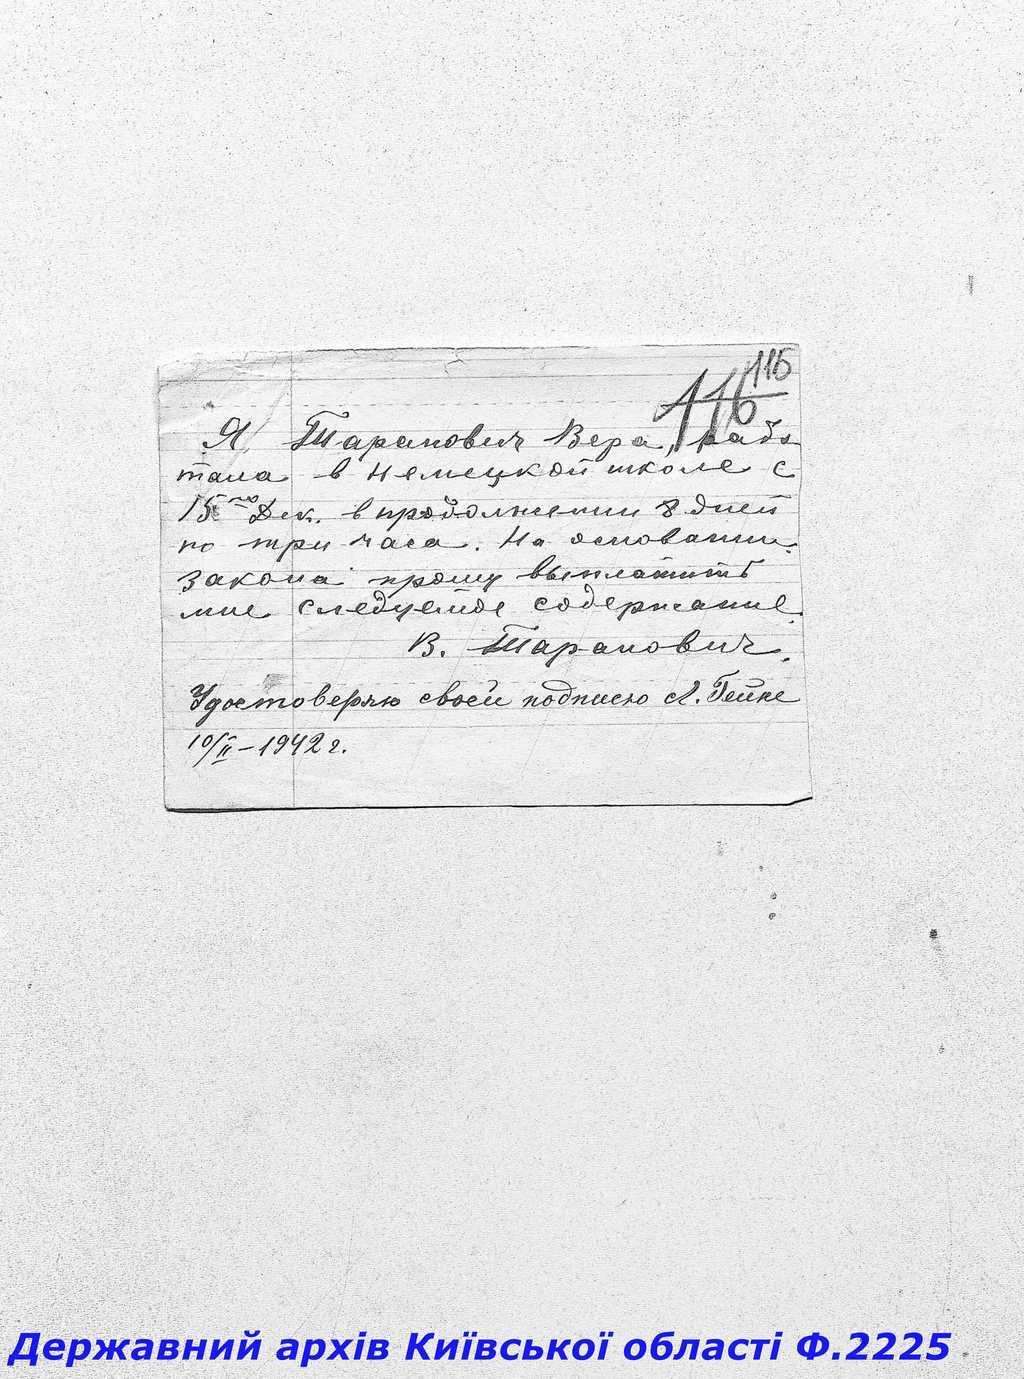 115
116
Я, Таранович Вера, рабо
тала в Немецкой школе с
15го Дек. в продолжении 8 дней
по три часа. На основании
закона прошу выплатить
мне следуемое содержание.
В. Таранович.
Удостоверяю своей подписью Л. Гейне
10/II – 1942 г.
Державний архів Київської області Ф.2225